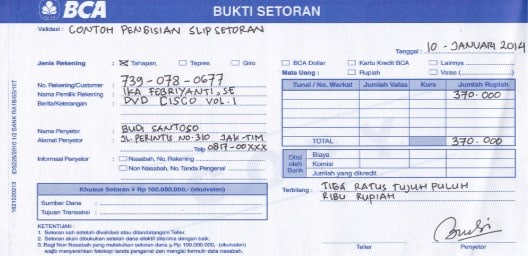 BCA BUKTI SETORAN
Validasi : CONTOH PENGISIAN SLIP SETORAN
Tanggal : 10 - JANUARI 2014
Jenis Rekening : Tahapan Tapres Giro
BCA Dollar Kartu Kredit BCA Lainnya
Mata Uang : Rupiah Valas (
No. Rekening/Customer : 739-078-0677
Nama Pemilik Rekening : IKA FEBRIYANTI, SE
Berita/Keterangan : DVD CISCO VOL. 1
Tunai / No. Warkat Jumlah Valas Kurs Jumlah Rupiah
370.000
Nama Penyetor : BUDI SANTOSO
Alamat Penyetor : JL. PERINTIS NO. 310 JAK-TIM
Telp. 0817-00XXX
TOTAL 370.000
Informasi Penyetor : Nasabah, No. Rekening
Non Nasabah, No. Tanda Pengenal
Diisi oleh Bank
Biaya
Komisi
Jumlah yang dikredit
Khusus Setoran ≥ Rp 100.000.000,- (ekuivalen)
Sumber Dana :
Tujuan Transaksi :
Terbilang : TIGA RATUS TUJUH PULUH
RIBU RUPIAH
KETENTUAN :
1. Setoran sah setelah divalidasi atau ditandatangani Teller.
2. Setoran akan dibukukan setelah dana efektif diterima dengan baik.
3. Bagi Non Nasabah yang melakukan setoran dana ≥ Rp 100.000.000,- (ekuivalen)
wajib menyerahkan fotokopi tanda pengenal dan mengisi formulir data nasabah.
Teller Penyetor